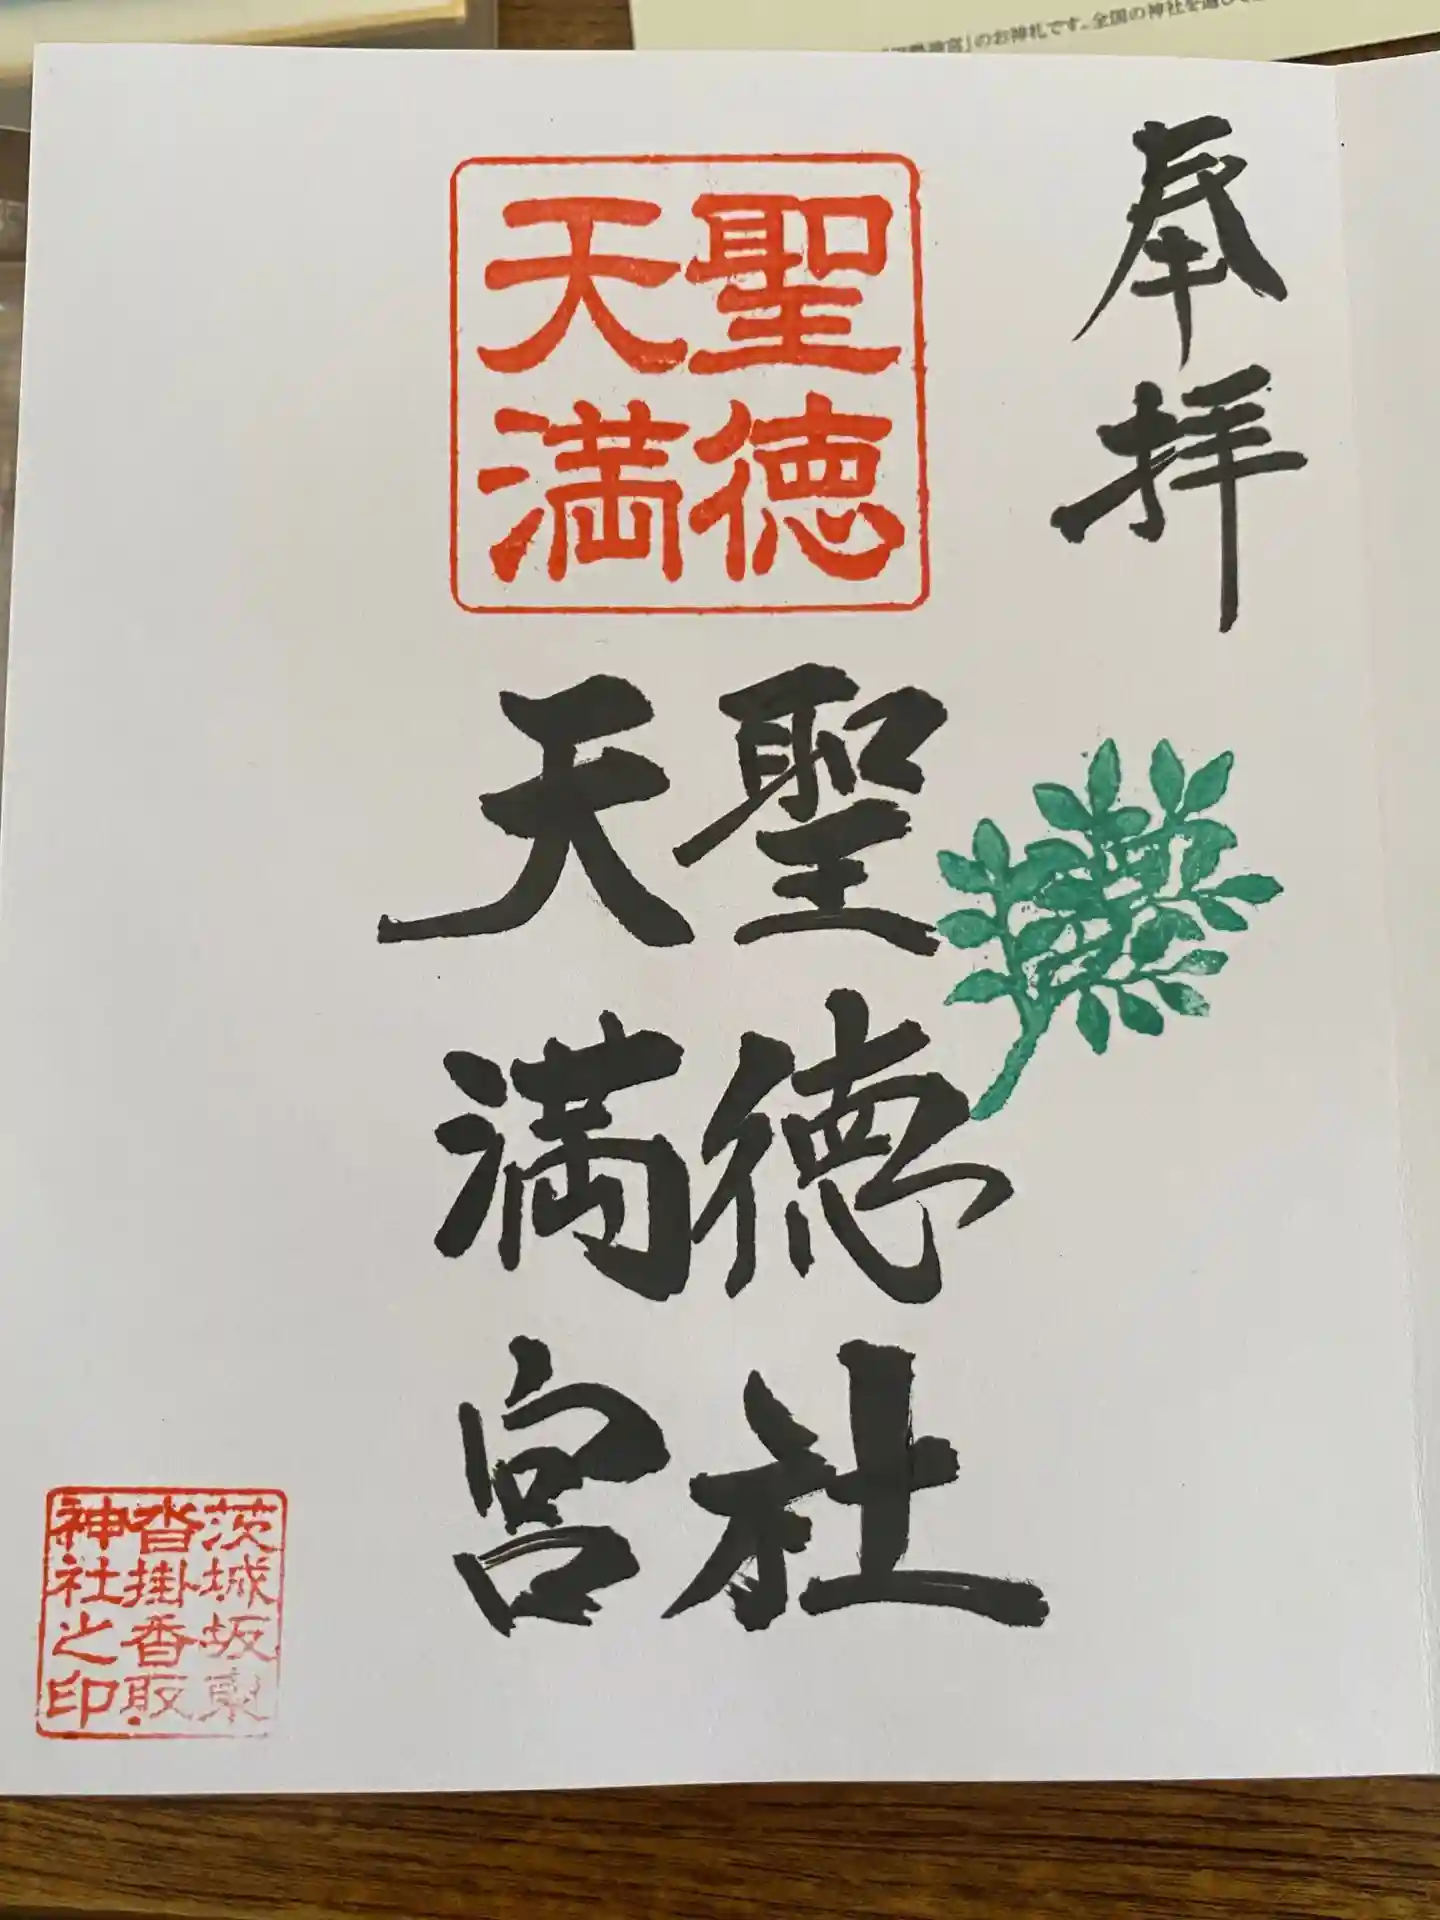 のお神札です。全国の神社を通して
奉拝
聖徳
天満
聖徳社
天満宮
茨城坂東
沓掛香取
神社之印